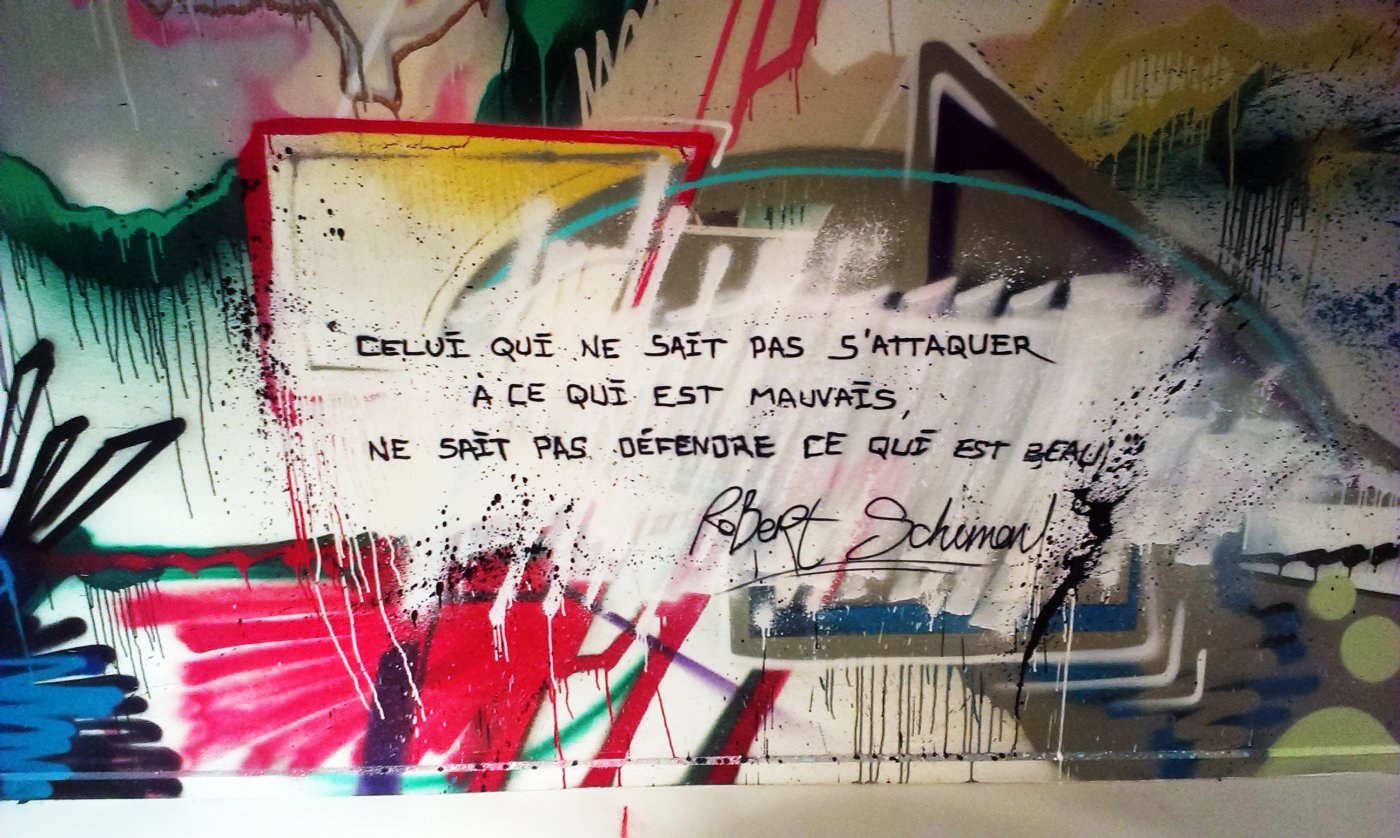 CELUI QUI NE SAIT PAS S'ATTAQUER
À CE QUI EST MAUVAIS,
NE SAIT PAS DÉFENDRE CE QUI EST BEAU
Robert Schuman